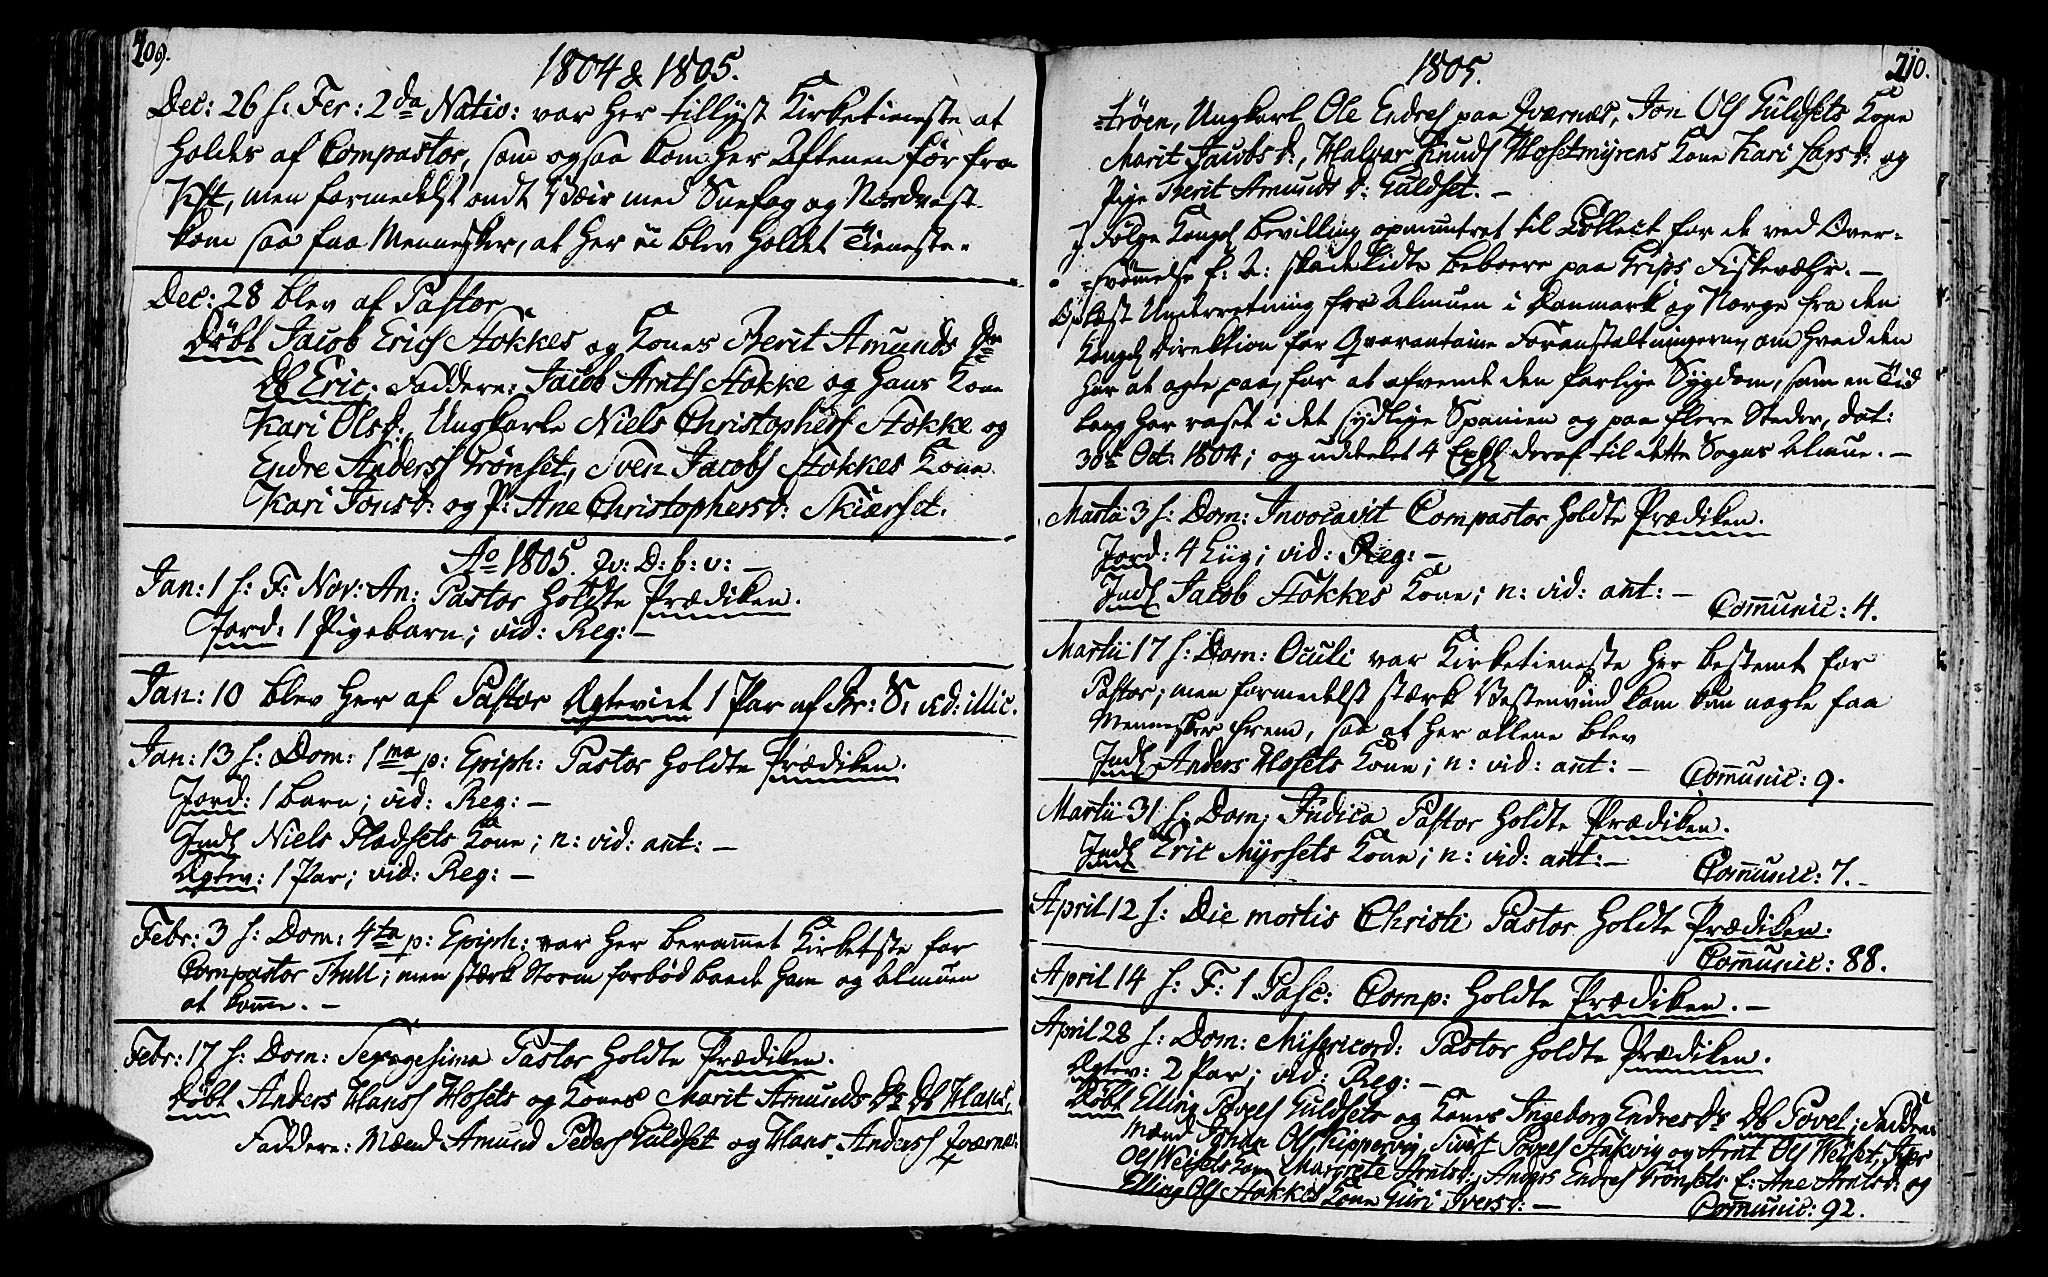 209.
1804 & 1805.
Dec: 26 h: Fer: 2da Nativ: var her tillyst Kirketieneste at
holdes af Compastor, som ogsaa kom her Aftenen før fra
men formedelst ondt Veir med Snefog og Nordvest
kom saa faa Mennesker, at her ei blev holdet Tieneste.
Dec: 28 blev af Pastor
Døbt Jacob Erichs Stokkes og Kones Berit Amunds Dr
Db Eric; Faddere: Jacob Arnts Stokke og hans Kone
Kari Olsd:, Ungkarle Niels Christophers Stokke og
Endre Anderss Trønset, Sven Jacobs Stokkes Kone
Kari Jonsd: og P: Ane Christophersd: Skiærset.
Ao 1805. D: b: v: —
Jan: 1 h: F: Nov: An: Pastor holdte Prædiken.
Jord: 1 Pigebarn; vid: Reg: —
Jan: 10 blev her af Pastor Ægteviet 1 Par af Br: S: vid: illic.
Jan: 13 h: Dom: 1ma p: Epiph: Pastor holdte Prædiken.
Jord: 1 barn; vid: Reg: —
Indl Niels Fladsets Kone; n: vid: ant: —
Ægtev: 1 Par; vid: Reg: —
Febr: 3 h: Dom: 4ta p: Epiph: var her beramet Kirketste for
Compastor Bull; men stærk Storm forbød baade ham og Almuen
at kome. —
Febr: 17 h: Dom: Sexagesima Pastor holdte Prædiken.
Døbt Anders Hanss Hosets og Kones Marit Amunds Dr Db Hans,
Faddere: Mænd Amund Peders Guldset og Hans Anderss Qværnes
210.
1805.
=trøen, Ungkarl Ole Endres paa Qværnes, Jon Ols Guldsets Kone
Marit Jacobsd:, Halvar Knuds Hosetmyrens Kone Kari Larsd: og
Pige Berit Amundsd: Guldset. —
I Følge Kongel Bevilling opmuntret til Collect for de ved Over-
=svømmelse skadelidte Beboere paa Grips Fiskevæhr. —
Oplæst Underretning for Almuen i Danmark og Norge fra den
Kongel Direktion for Qvarantaine Foranstaltningerne, om hvad den
har at agte paa, for at afvende den farlige Sygdom, som en Tid
lang har raset i det sydlige Spanien og paa flere Steder, dat:
30te Oct: 1804; og uddeelet 4 Expl deraf til dette Sogns Almue. —
Martii 3 h: Dom: Invocavit Compastor holdte Prædiken.
Jord: 4 Liig; vid: Reg: —
Indl Jacob Stokkes Kone; n: vid: ant: —
Comunic: 4.
Martii 17 h: Dom: Oculi var Kirketieneste her bestemt for
Pastor; men formedelst stærk Vestenvind kom kun nogle faa
Mennesker frem, saa at her allene blev
Indl Anders Hosets Kone; n: vid: ant: —
Comunic: 9.
Martii 31 h: Dom: Judica Pastor holdte Prædiken.
Indl Eric Myrsets Kone; n: vid: ant: —
Comunic: 7. —
April 12 h: Die mortis Christi Pastor holdte Prædiken.
Comunic: 88.
April 14 h: F: 1 Pasc: Comp: holdte Prædiken. —
April 28 h: Dom: Misericord: Pastor holdte Prædiken.
Ægtev: 2 Par; vid: Reg: —
Døbt Elling Povels Guldsets og Kones Ingeborg Endresdr Db Povel; Faddere
Mænd Johan Ols Kippervig, Siurt Povels Stukvig og Arnt Ols Weiset,
Ols Weisets Kone Margrete Arntsd:, Anders Endres Trønsets E: Ane Arntsd: og
Elling Ols Stokkes Kone Guri Iversd: —
Comunic: 92.